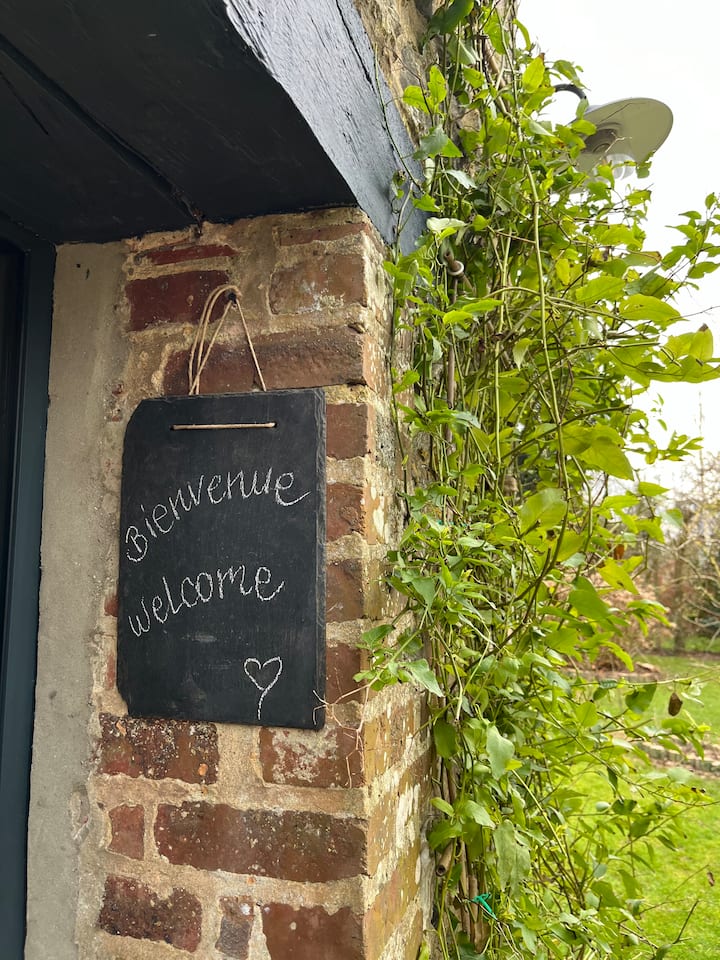 Bienvenue
welcome